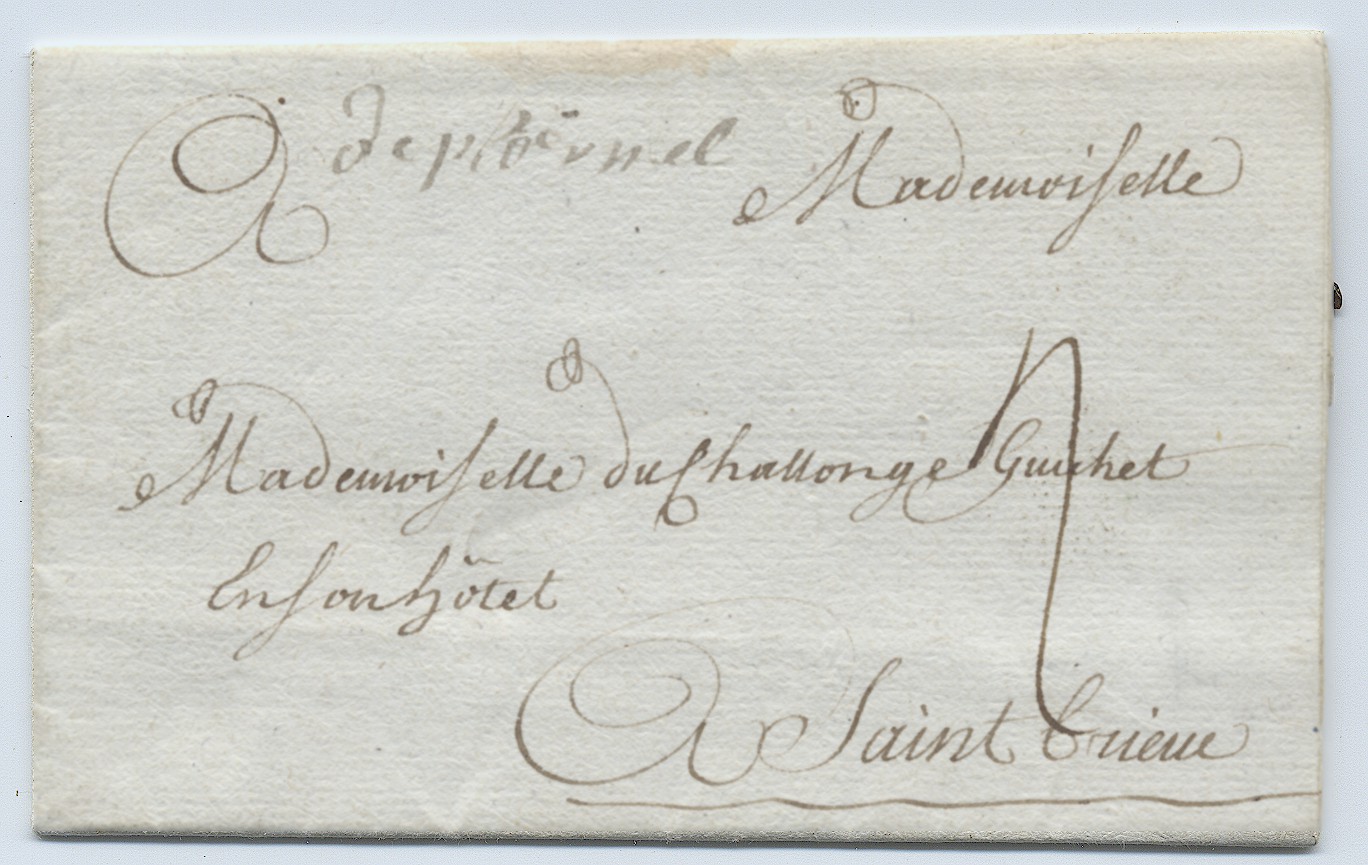 A Mademoiselle
Mademoiselle du Challonge Guichet
En son hôtel
A Saint brieuc